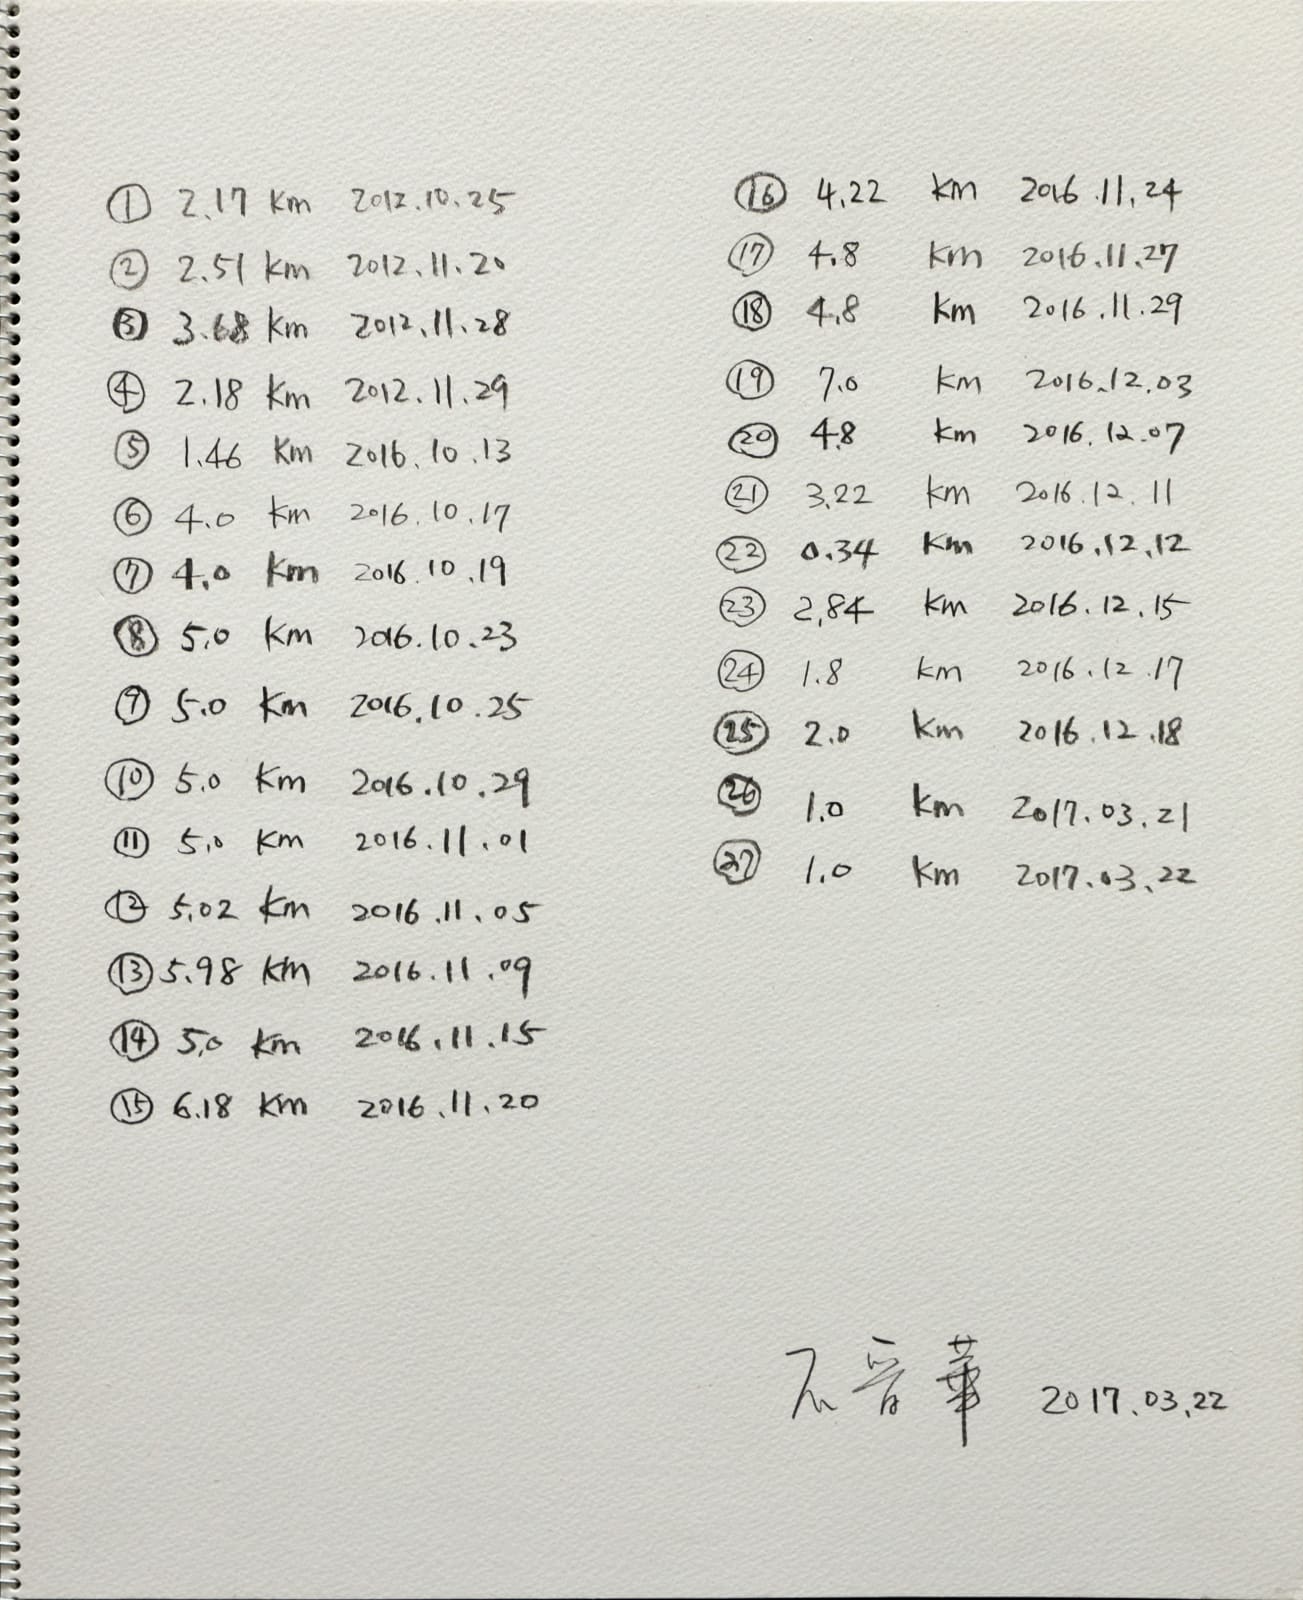 ① 2.17 km 2012.10.25
② 2.51 km 2012.11.20
③ 3.68 km 2012.11.28
④ 2.18 km 2012.11.29
⑤ 1.46 km 2016.10.13
⑥ 4.0 km 2016.10.17
⑦ 4.0 km 2016.10.19
⑧ 5.0 km 2016.10.23
⑨ 5.0 km 2016.10.25
⑩ 5.0 km 2016.10.29
⑪ 5.0 km 2016.11.01
⑫ 5.02 km 2016.11.05
⑬ 5.98 km 2016.11.09
⑭ 5.0 km 2016.11.15
⑮ 6.18 km 2016.11.20
⑯ 4.22 km 2016.11.24
⑰ 4.8 km 2016.11.27
⑱ 4.8 km 2016.11.29
⑲ 7.0 km 2016.12.03
⑳ 4.8 km 2016.12.07
㉑ 3.22 km 2016.12.11
㉒ 0.34 km 2016.12.12
㉓ 2.84 km 2016.12.15
㉔ 1.8 km 2016.12.17
㉕ 2.0 km 2016.12.18
㉖ 1.0 km 2017.03.21
㉗ 1.0 km 2017.03.22
石晋華 2017.03.22